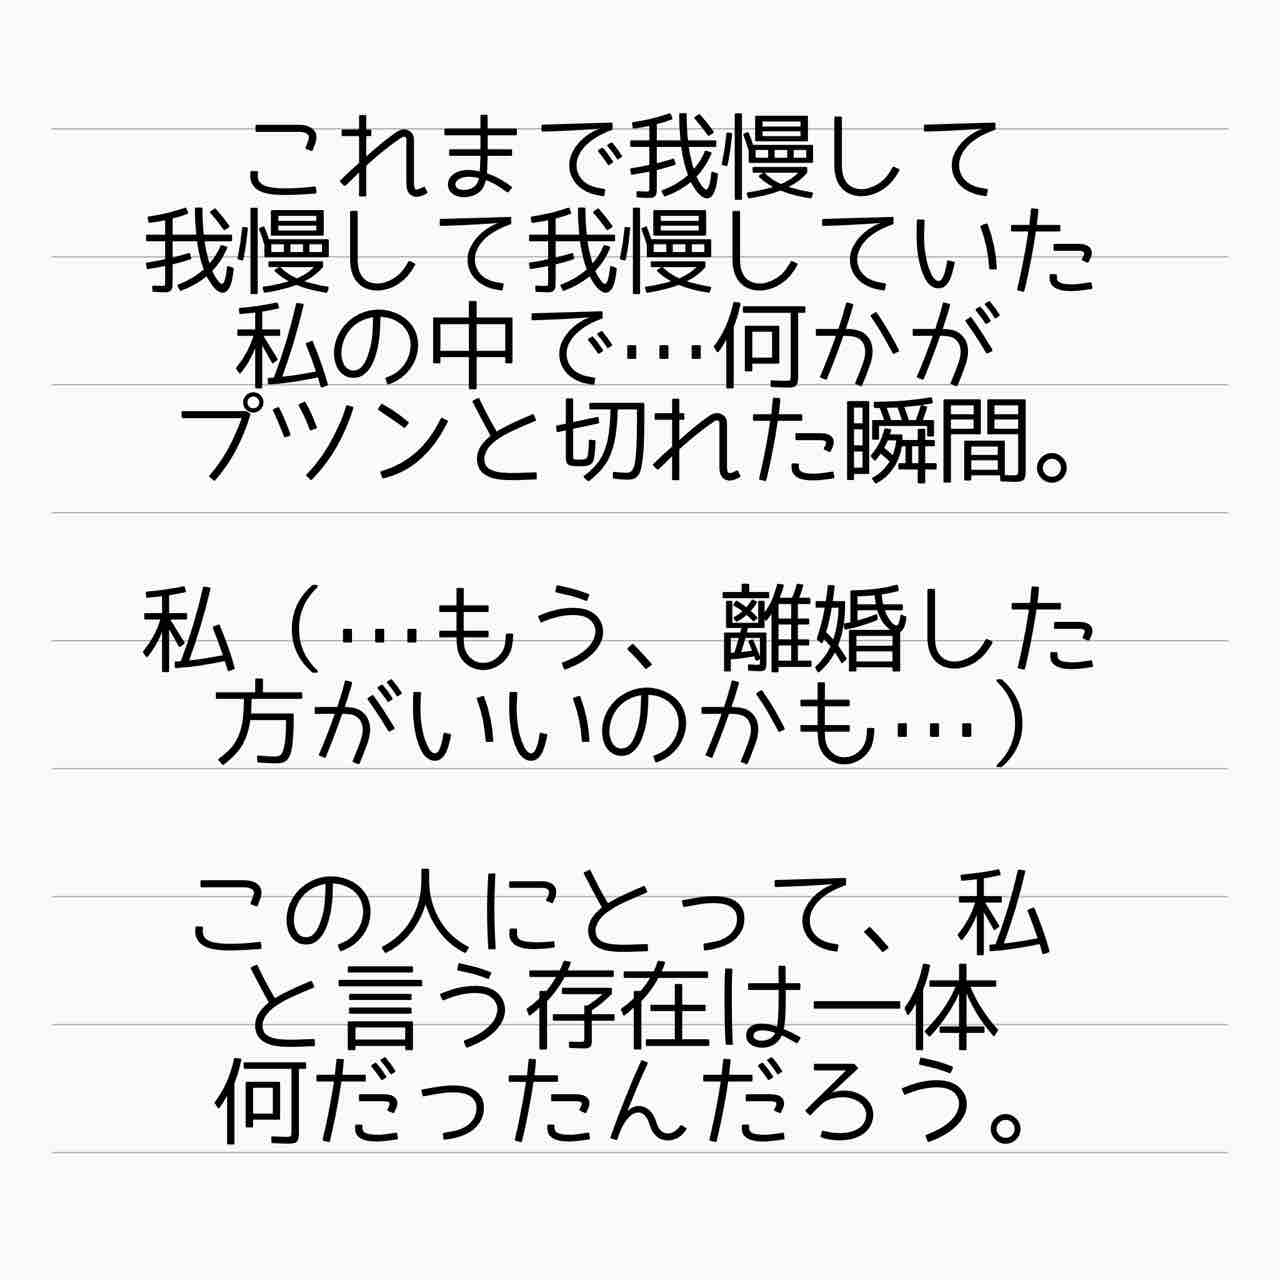 これまで我慢して
我慢して我慢していた
私の中で…何かが
プツンと切れた瞬間。
私（…もう、離婚した
方がいいのかも…）
この人にとって、私
と言う存在は一体
何だったんだろう。